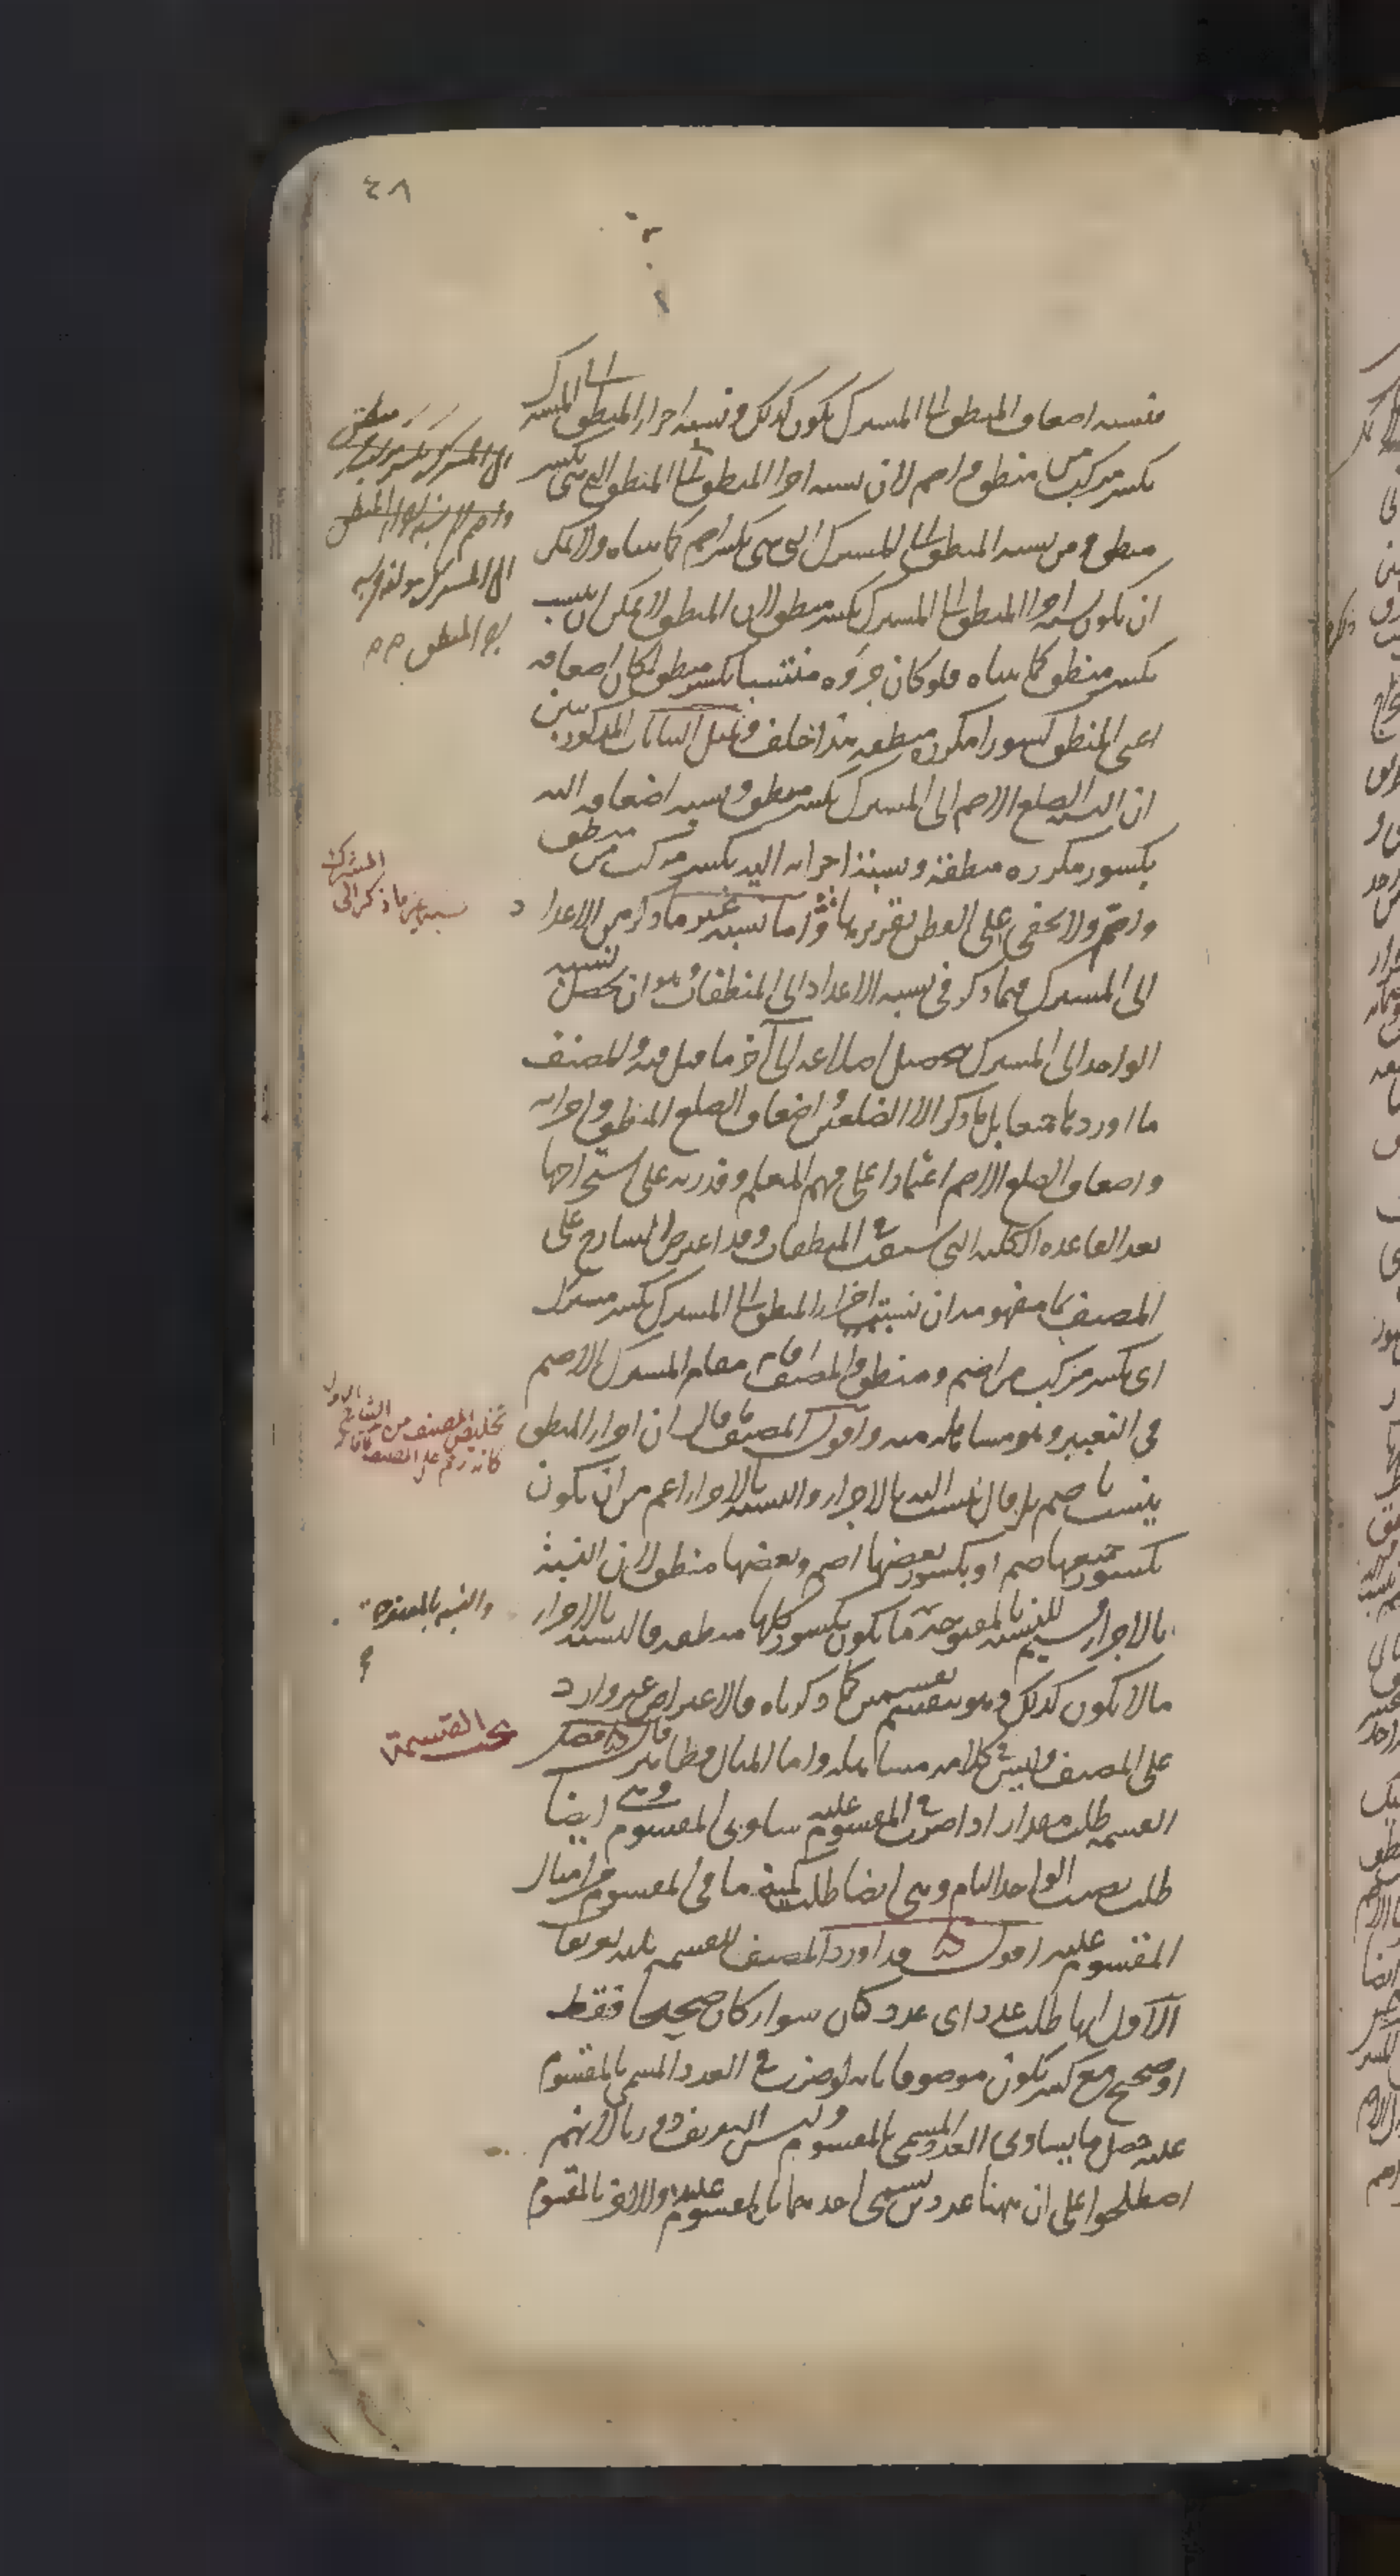 ٤٨
فنسبه اضعاف المنطق الى المشترك يكون كذلك ونسبة اجزاء المنطق الى المشترك
بكسر مركب من منطق واصم لان نسبه اجزا المنطق الى المنطق التى هى بكسر
منطق ومن نسبه المنطق الى المشترك التى هى بكسر اصم كما بيناه ولا يمكن
ان يكون نسبه اجزا المنطق الى المشترك بكسر منطق لان المنطق لا يمكن ان ينسب
بكسر منطق كما بيناه فلو كان جزؤه منتسبا بكسر منطق لكان اضعافه
اعنى المنطق كسورا مكرره منطقه هذا خلف وبمثل البيانات المذكورة يتبين
ان نسبة الضلع الاصم الى المشترك بكسر منطق ونسبه اضعافه اليه
بكسور مكرره منطقة ونسبة اجزائه اليه بكسر مركب من منطق
واصم ولا يخفى على الفطن تقريرها واما نسبه غير ما ذكر من الاعداد
الى المشترك فبما ذكر فى نسبه الاعداد الى المنطقات وهو ان تحصل نسبه
الواحد الى المشترك بتحصيل اضلاعه الى آخر ما قيل فيه والمصنف
ما اورد هاهنا مقابل ما ذكر الا الضلعين واضعاف الضلع المنطق واجزائه
واضعاف الضلع الاصم اعتمادا على فهم المتعلم وقدرته على استخراجها
بعد القاعده الكليه التى سبقت فى المنطقات وقد اعترض الشارح على
المصنف بما مفهومه ان نسبة اجزاء المنطق الى المشترك بكسر مشترك
اى بكسر مركب من اصم ومنطق والمصنف اقام مقام المشترك الاصم
فى التعبير وهو مساهله منه واقول المصنف ما قال ان اجزاء المنطق
ينسب باصم بل قال ينسب اليه بالاجزاء والنسبه بالاجزاء اعم من ان يكون
بكسور جميعها اصم او بكسور بعضها اصم وبعضها منطق لان النسبة
بالاجزاء قسيم للنسبه المفتوحة ما يكون بكسور كلها منطقه فالنسبه بالاجزاء
ما لا يكون كذلك وهو ينقسم بقسمين كما ذكرناه فالاعتراض غير وارد
على المصنف وليس فى كلامه مساهله واما المثال فظاهر قال فصل
القسمه طلب مقدار اذا ضرب فى المقسوم عليه ساوى المقسوم وهى ايضا
طلب نصيب الواحد التام وهى ايضا طلب كمية ما فى المقسوم من امثال
المقسوم عليه اقول قد اورد المصنف للقسمه ثلثه تعريفات
الاول انها طلب عدد اى عدد كان سواء كان صحيحا فقط
او صحيح مع كسر يكون موصوفا بانه لو ضرب فى العدد المسمى بالمقسوم
عليه حصل ما يساوى العدد المسمى بالمقسوم وليس التعريف دوريا لانهم
اصطلحوا على ان ههنا عددين يسمى احدهما بالمقسوم عليه والاخر بالمقسوم
منطق
الى المشترك بكسر مركب من
واصم لان نسبه اجزاء المنطق
الى المشترك مولفة من نسبه
اجزا المنطق صح
المشترك
نسبة غير ما ذكر الى
تخليص المصنف من
والنسبه المفتوحة
بحث القسمة